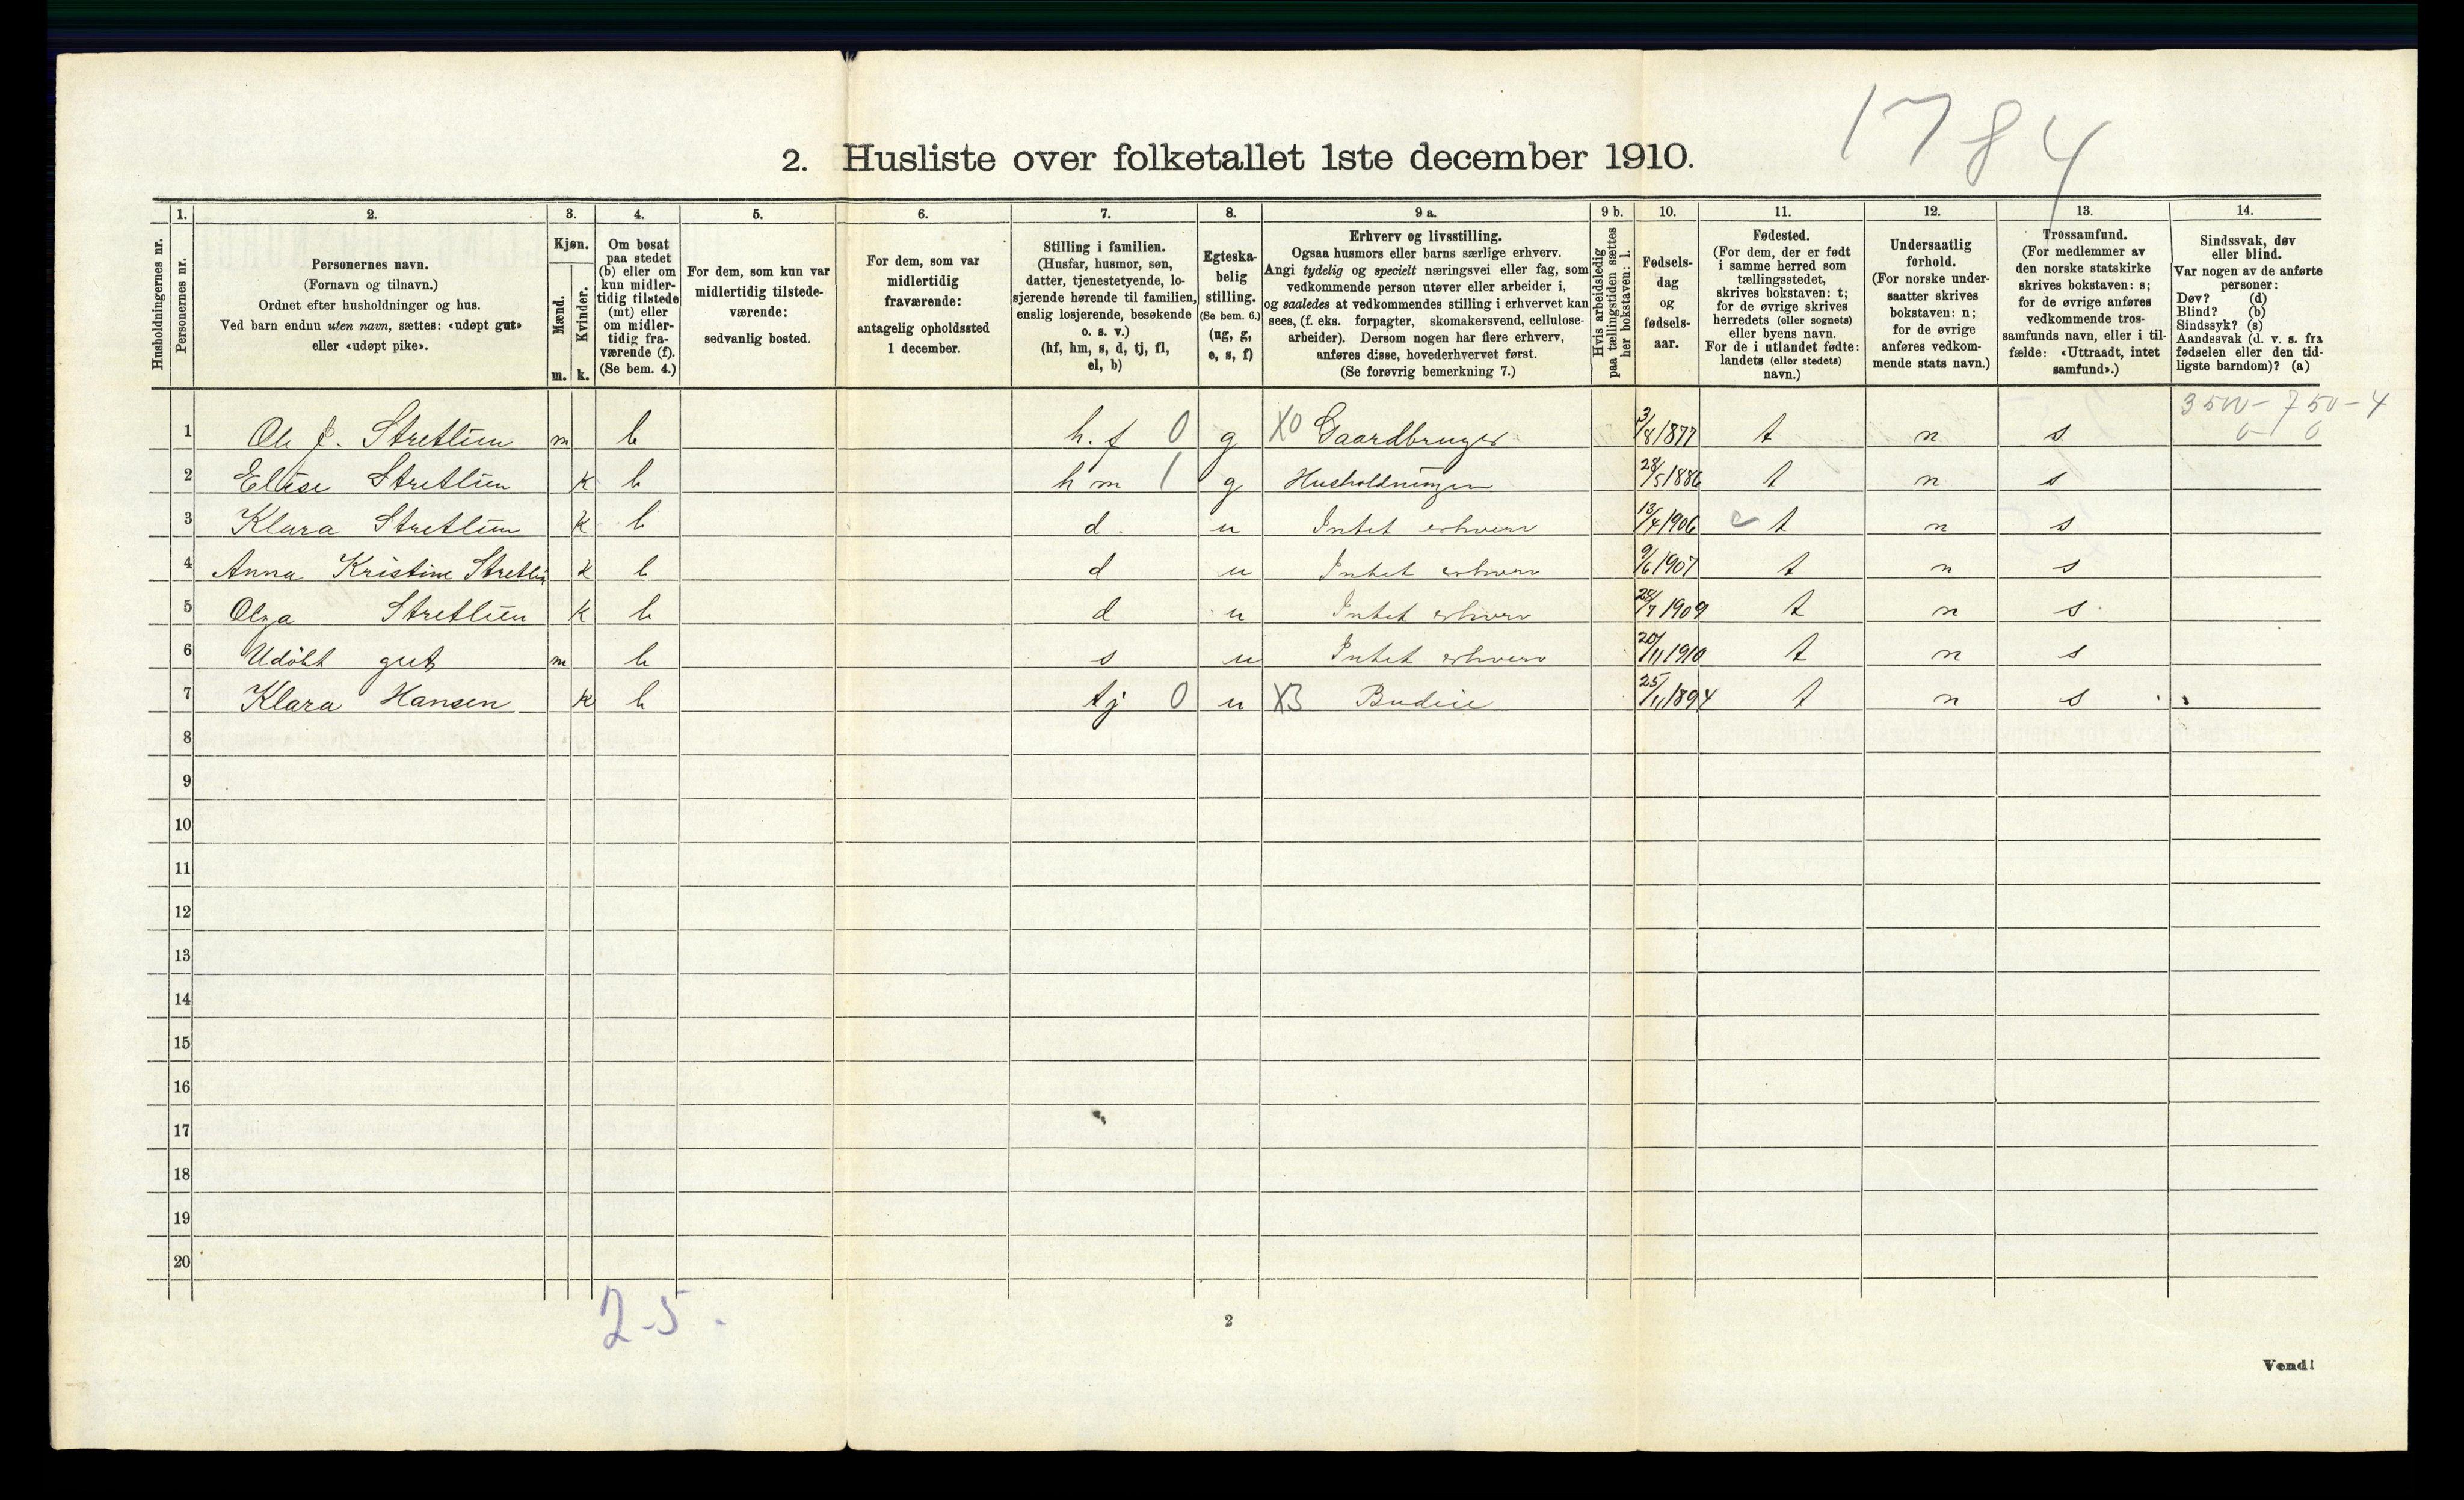 1784
2. Husliste over folketallet 1ste december 1910.
1. 2. 3. 4. 5. 6. 7. 8. 9 a. 9 b. 10. 11. 12. 13. 14.
Husholdningernes nr.
Personernes nr.
Personernes navn.
(Fornavn og tilnavn.)
Ordnet efter husholdninger og hus.
Ved barn endnu uten navn, sættes: «udøpt gut»
eller «udøpt pike».
Kjøn.
Mænd.
Kvinder.
m. k.
Om bosat
paa stedet
(b) eller om
kun midler-
tidig tilstede
(mt) eller
om midler-
tidig fra-
værende (f).
(Se bem. 4.)
For dem, som kun var
midlertidig tilstede-
værende:
sedvanlig bosted.
For dem, som var
midlertidig
fraværende:
antagelig opholdssted
1 december.
Stilling i familien.
(Husfar, husmor, søn,
datter, tjenestetyende, lo-
sjerende hørende til familien,
enslig losjerende, besøkende
o. s. v.)
(hf, hm, s, d, tj, fl,
el, b)
Egteska-
belig
stilling.
(Se bem. 6.)
(ug, g,
e, s, f)
Erhverv og livsstilling.
Ogsaa husmors eller barns særlige erhverv.
Angi tydelig og specielt næringsvei eller fag, som
vedkommende person utøver eller arbeider i,
og saaledes at vedkommendes stilling i erhvervet kan
sees, (f. eks. forpagter, skomakersvend, cellulose-
arbeider). Dersom nogen har flere erhverv,
anføres disse, hovederhvervet først.
(Se forøvrig bemerkning 7.)
Hvis arbeidsledig
paa tællingstiden sættes
her bokstaven: l.
Fødsels-
dag
og
fødsels-
aar.
Fødested.
(For dem, der er født
i samme herred som
tællingsstedet,
skrives bokstaven: t;
for de øvrige skrives
herredets (eller sognets)
eller byens navn.
For de i utlandet fødte:
landets (eller stedets)
navn.)
Undersaatlig
forhold.
(For norske under-
saatter skrives
bokstaven: n;
for de øvrige
anføres vedkom-
mende stats navn.)
Trossamfund.
(For medlemmer av
den norske statskirke
skrives bokstaven: s;
for de øvrige anføres
vedkommende tros-
samfunds navn, eller i til-
fælde: «Uttraadt, intet
samfund».)
Sindssvak, døv
eller blind.
Var nogen av de anførte
personer:
Døv? (d)
Blind? (b)
Sindssyk? (s)
Aandssvak (d. v. s. fra
fødselen eller den tid-
ligste barndom)? (a)
3500-750-4
0-0
1 Ole J. Stretlien m b h.f 0 g X0 Gaardbruger 3/8 1877 t n s
2 Elise Stretlien k b hm 1 g Husholdningen 28/5 1886 t n s
3 Klara Stretlien k b d u Intet erhverv 13/4 1906 t n s
4 Anna Kristine Stretlien k b d u Intet erhverv 9/6 1907 t n s
5 Olga Stretlien k b d u Intet erhverv 28/7 1909 t n s
6 Udöbt gut m b s u Intet erhverv 20/11 1910 t n s
7 Klara Hansen k b tj 0 u X3 Budeie 25/11 1894 t n s
8
9
10
11
12
13
14
15
16
17
18
19
20
2-5.
2
Vend!